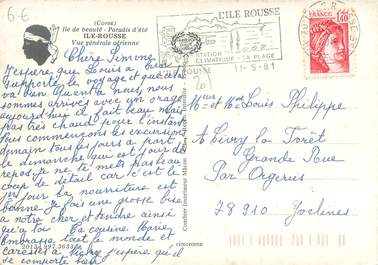 6€
(Corse)
Ile de beauté - Paradis d'été
ILE-ROUSSE
Vue générale aérienne
L'ILE ROUSSE
STATION
CLIMATIQUE - SA PLAGE
11-5-81
FRANCE
1,40
Chère Simone
J'espère que Louis a bien
supporté le voyage et que cela
va bien. Quant à nous, nous
sommes arrivés avec un orage
aujourd'hui il fait beau mais
pas très chaud pour l'instant
Nous commençons les excursions
demain tous les jours à part
le dimanche qui est jour de
repos je ne te mets pas beau
coup de détail car c'est le
1er jour la nourriture est
bonne. Je fais une grosse bise
à notre cher et tendre ainsi
qu'à toi. Ta cousine
Embrasse tout le monde et
caresses à j'espère qu'il
se comporte bien
Mr et Mme Louis Philippe
à Civry la Forêt
Grande Rue
Par Orgerus
78910 Yvelines
Combier Imprimeur Mâcon
cim